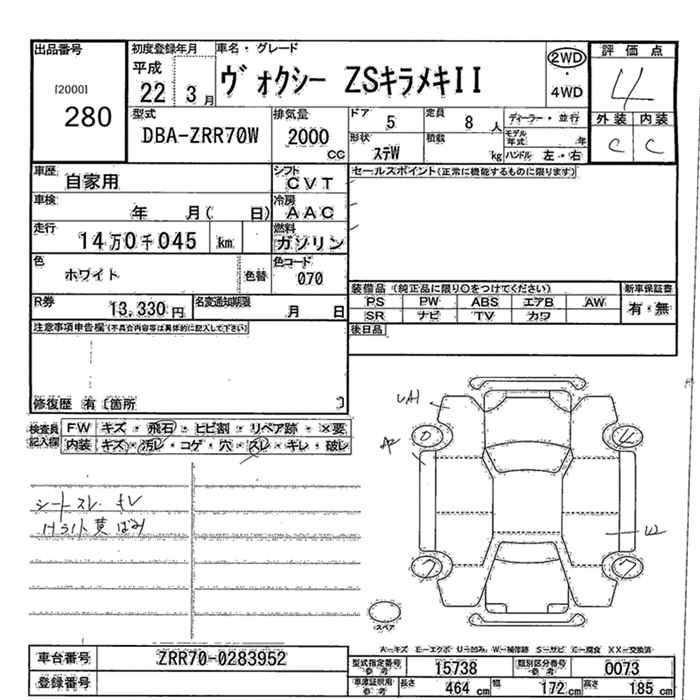 出品番号
[2000]
280
初度登録年月
平成
22 3月
車名・グレード
ヴォクシー ZSキラメキII
2WD
・
4WD
評価点
4
外装 内装
C C
型式
DBA-ZRR70W
排気量
2000
cc
ドア 5
定員 8 人
ディーラー・並行
形状 ステW
積載 kg
モデル年式 年
ハンドル 左・右
車歴 自家用
シフト CVT
車検 年 月( 日)
冷房 AAC
走行 14万0千045 km
燃料 ガソリン
色 ホワイト 色替
色コード 070
R券 13,330円
名変通知期限 月 日
セールスポイント(正常に機能するものに限ります)
装備品 (純正品に限り○をつけてください)
新車保証書
PS PW ABS エアB AW
SR ナビ TV カワ
有・無
後日品
注意事項申告欄(不具合内容等は具体的に記入して下さい)
修復歴 有 [箇所 ]
検査員記入欄
FW キズ・飛石・ヒビ割・リペア跡・×要
内装 キズ・汚レ・コゲ・穴・スレ・キレ・破レ
シートスレ・キレ
Hライト黄ばみ
UA1
AP
U2
スペア
A=キズ E=エクボ U=凹み W=補修跡 S=サビ C=腐食 XX=交換済
車台番号 ZRR70-0283952
登録番号
型式指定番号 参考 15738
類別区分番号 参考 0073
車庫証明用 参考
長さ 464 cm
幅 172 cm
高さ 185 cm